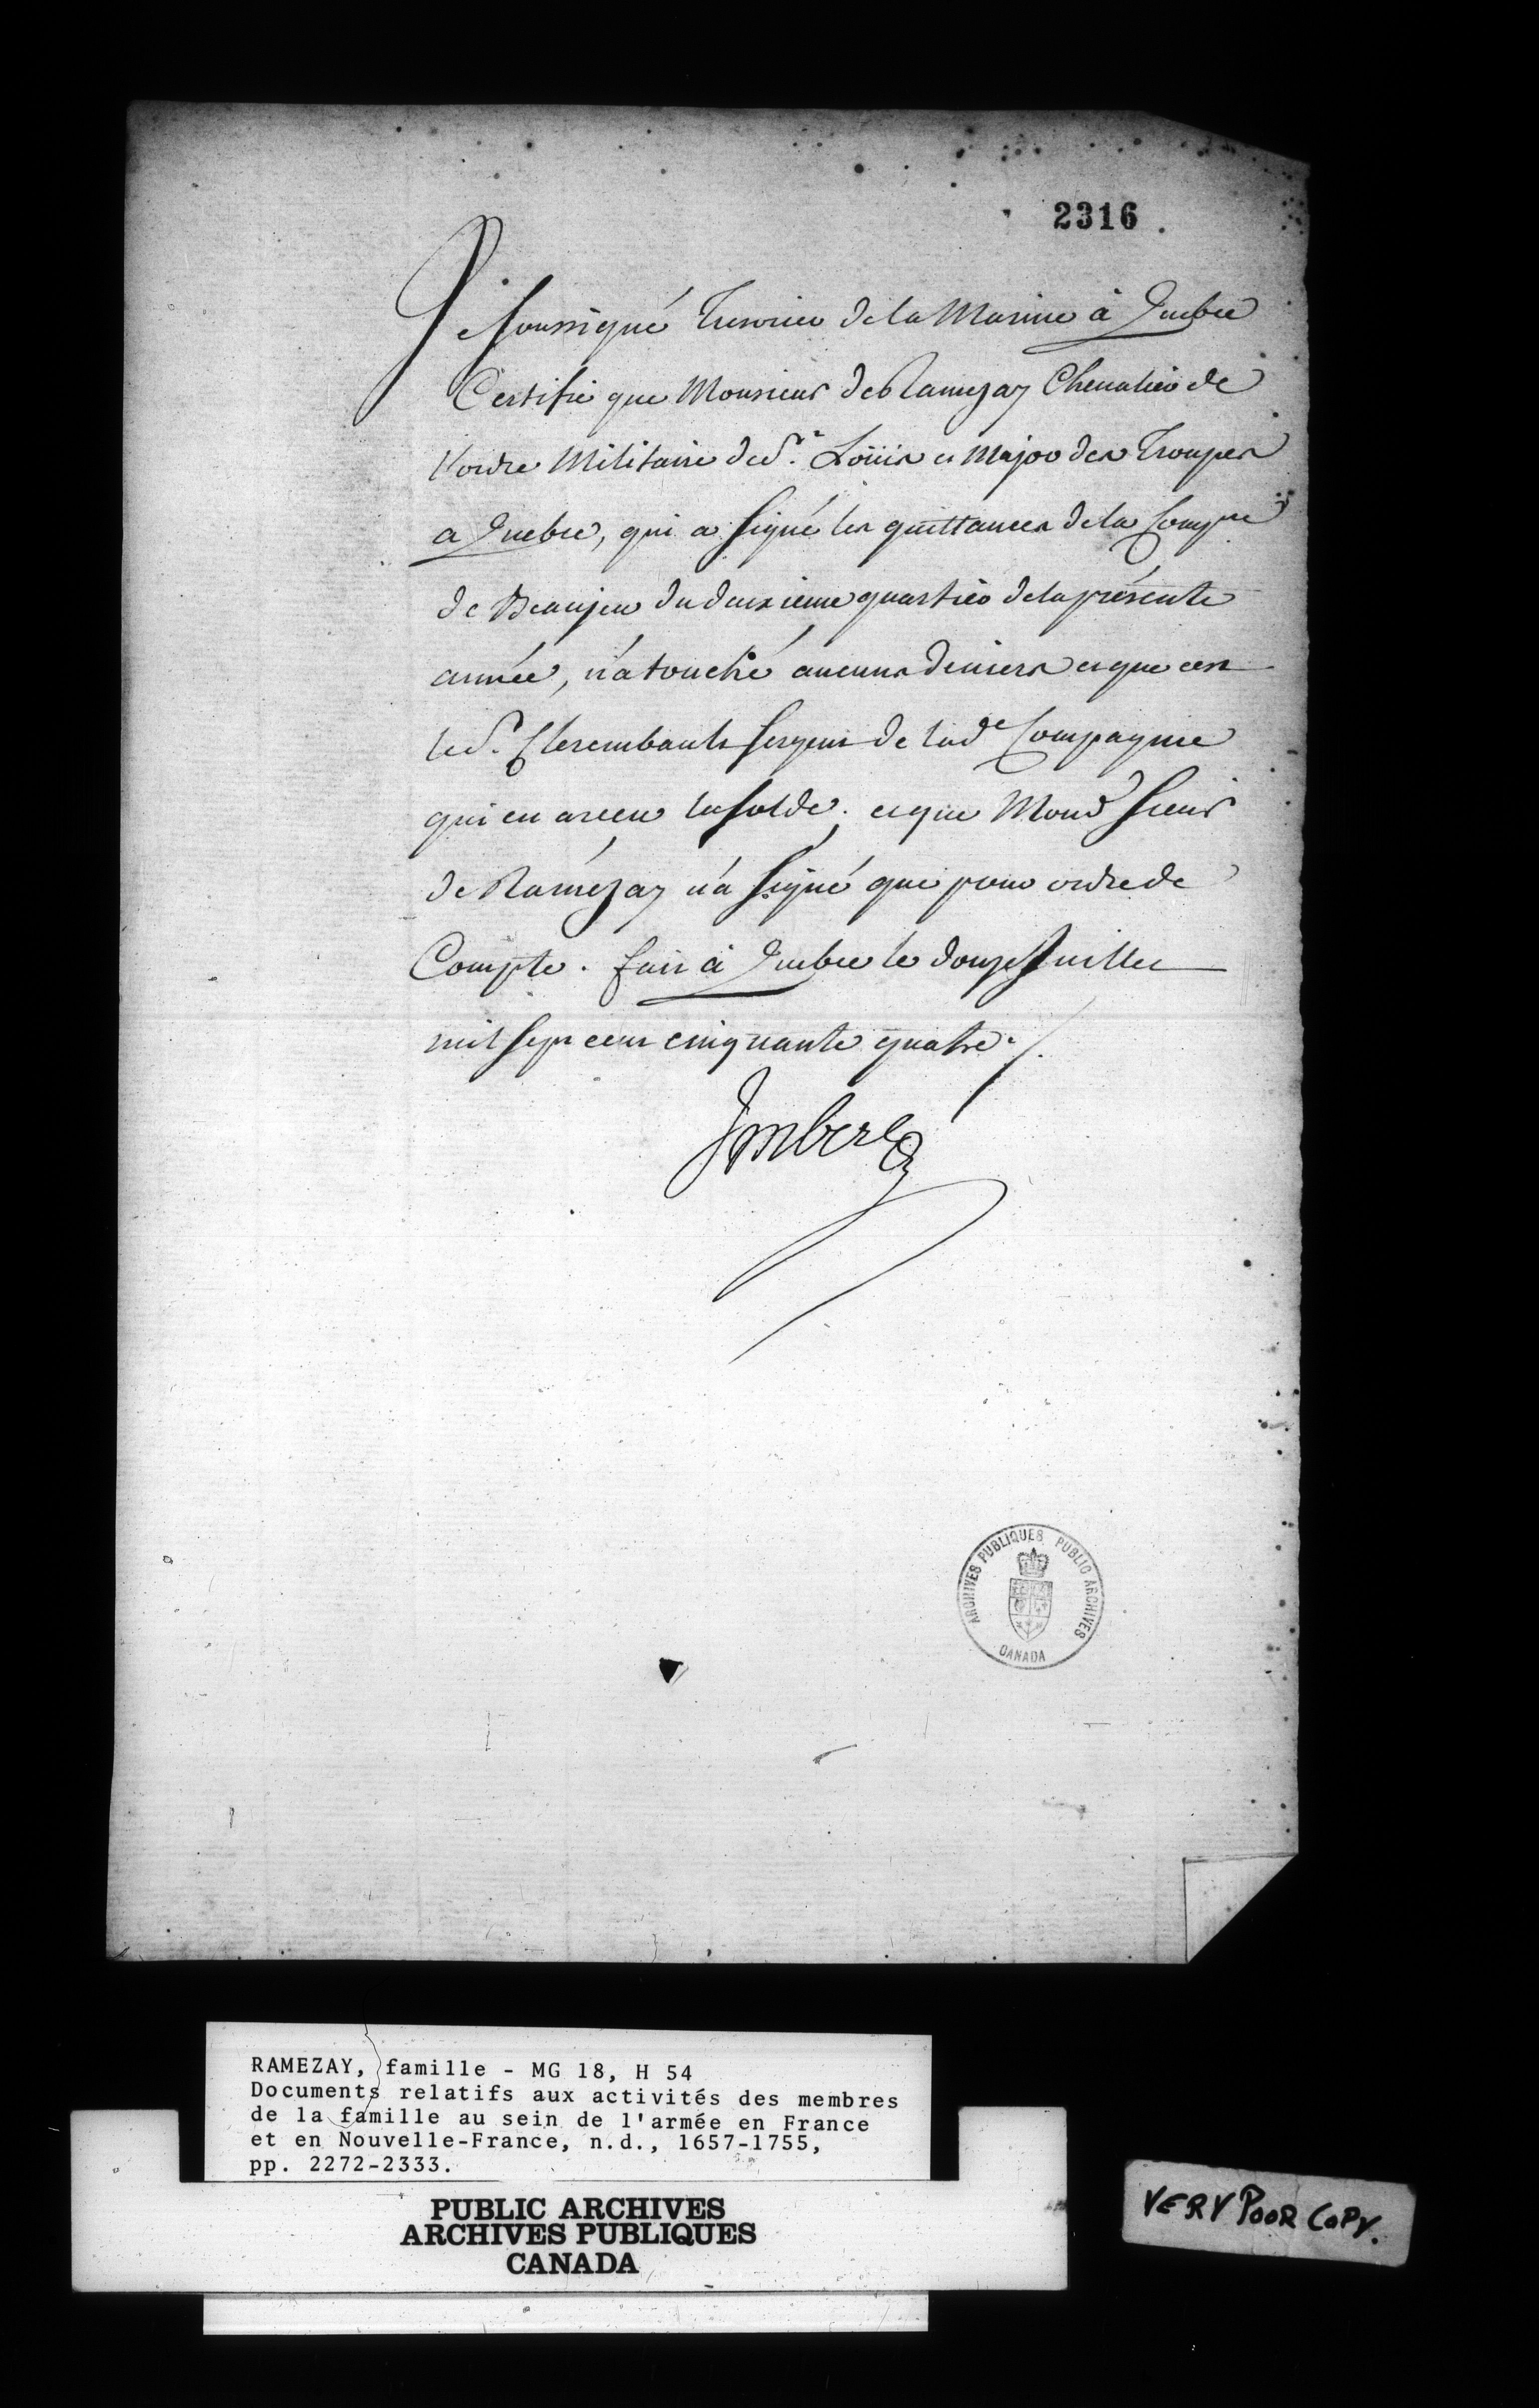 2316
Je soussigné Tresorier de la Marine à Quebec
Certifie que Monsieur de Ramezay Chevalier de
l'ordre Militaire de St. Loüis et Major des Troupes
a Quebec, qui a signé les quittances de la Compie
de Beaujeu du deuxieme quartier de la présente
année, n'a touché aucuns deniers et que cest
le Sr. Clerembault sergent de lade Compagnie
qui en a receu la solde. et que Mond Sieur
de Ramézay n'a signé que pour ordre de
Compte. fait à Quebec le douze Juillet
mil sept cent cinquante quatre ./.
Imbert
ARCHIVES PUBLIQUES PUBLIC ARCHIVES
CANADA
RAMEZAY, famille - MG 18, H 54
Documents relatifs aux activités des membres
de la famille au sein de l'armée en France
et en Nouvelle-France, n.d., 1657-1755,
pp. 2272-2333.
PUBLIC ARCHIVES
ARCHIVES PUBLIQUES
CANADA
VERY POOR COPY.